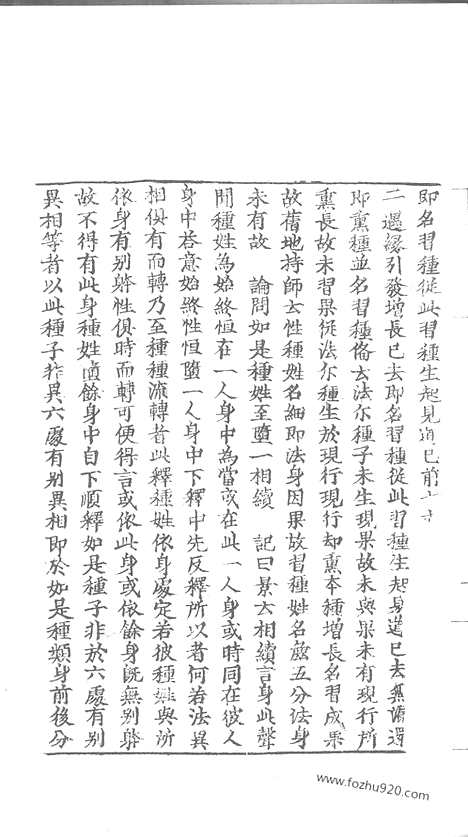 即名習種從此習種生起見道已前七方
二遇緣引發增長已去即名習種從此習種生起見道已去無備還
即熏種並名習種脩云法尒種子未生現果故未與果未有現行所
熏長故未習果從法尒種生於現行現行却熏本種增長名習成果
故舊地持師云性種姓名細即法身因果故習種姓名麁五分法身
未有故　論問如是種姓至墮一相續　記曰景云相續言身此聲
聞種姓為始終恒在一人身中為當或在此一人身或時同在彼人
身中答意始終性恒墮一人身中下釋中先反釋所以者何若法異
相俱有而轉乃至種種流轉者此釋種姓依身處定若彼種姓與所
依身有別躰性俱時而轉可便得言或依此身或依餘身旣無別躰
故不得有此身種姓墮餘身中自下順釋如是種子非於六處有別
異相等者以此種子非異六處有別異相即於如是種類身前後分
www.fozhu920.com